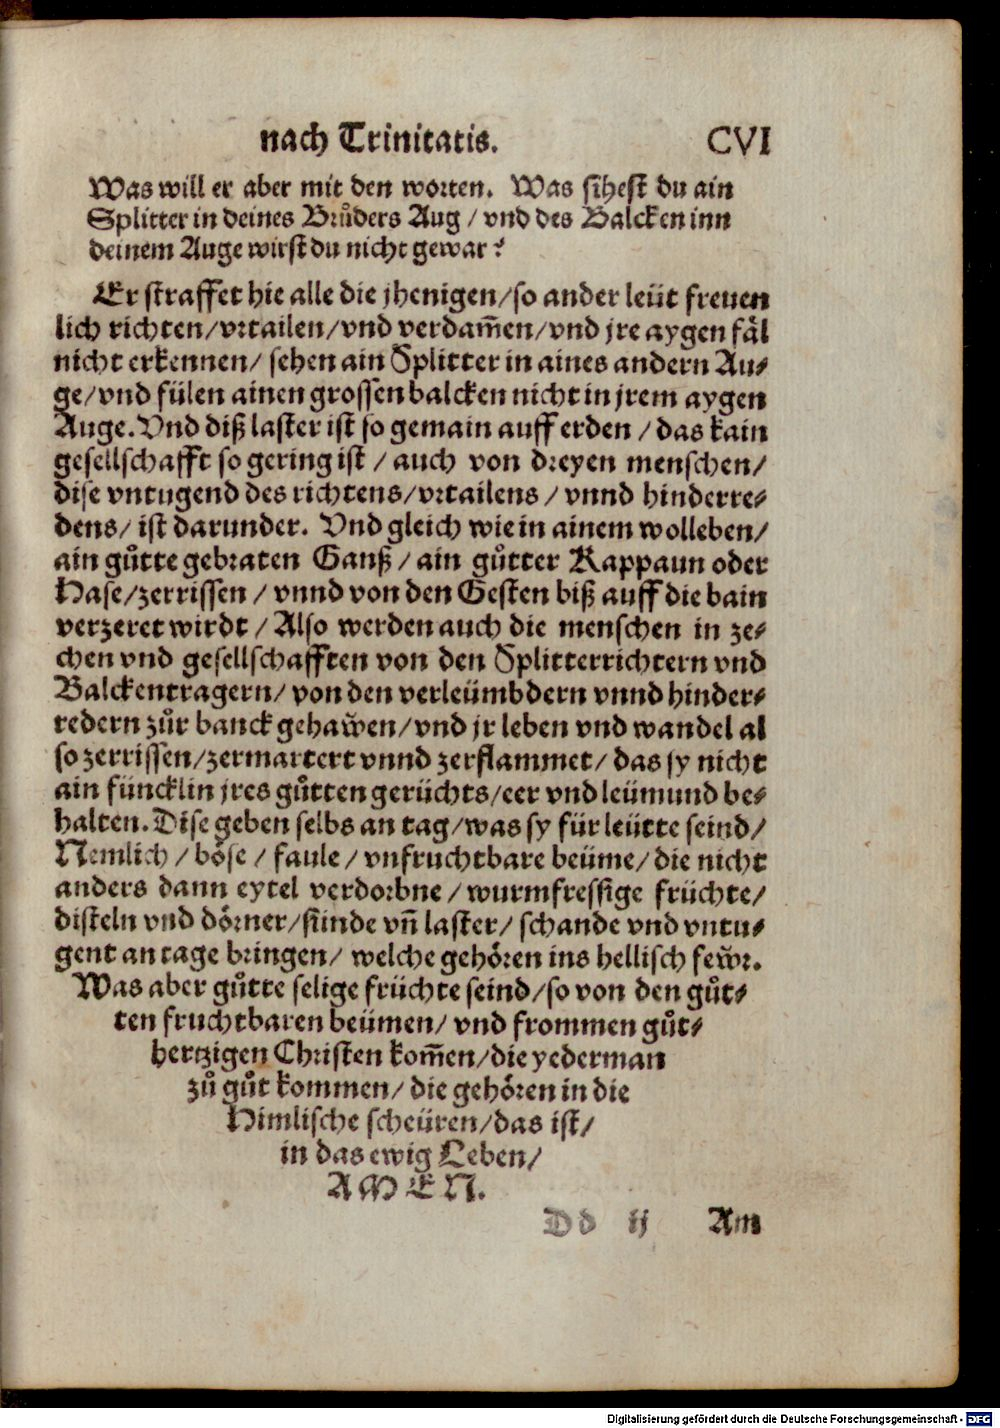 nach Trinitatis. CVI
Was will er aber mit den worten. Was sihest du ain
Splitter in deines Brůders Aug / vnd des Balcken inn
deinem Auge wirst du nicht gewar?
Er straffet hie alle die jhenigen/so ander leüt freuen
lich richten/vrtailen/vnd verdam̃en/vnd jre aygen fäl
nicht erkennen/ sehen ain Splitter in aines andern Au-
ge/vnd fülen ainen grossen balcken nicht in jrem aygen
Auge. Vnd diß laster ist so gemain auff erden / das kain
gesellschafft so gering ist / auch von dreyen menschen/
dise vntugend des richtens/vrtailens / vnnd hinderre-
dens/ ist darunder. Vnd gleich wie in ainem wolleben/
ain gůtte gebraten Ganß / ain gůtter Kappaun oder
Hase/zerrissen / vnnd von den Gesten biß auff die bain
verzeret wirdt / Also werden auch die menschen in ze-
chen vnd gesellschafften von den Splitterrichtern vnd
Balckentragern/ von den verleümbdern vnnd hinder-
redern zůr banck gehaw̃en/vnd jr leben vnd wandel al
so zerrissen/zermartert vnnd zerflammet/ das sy nicht
ain füncklin jres gůtten gerüchts/eer vnd leümund be-
halten. Dise geben selbs an tag/was sy für leütte seind/
Nemlich / böse / faule / vnfruchtbare beüme/ die nicht
anders dann eytel verdorbne / wurmfressige früchte/
disteln vnd dörner/sünde vñ laster/ schande vnd vntu-
gent an tage bringen/ welche gehören ins hellisch few̃r.
Was aber gůtte selige früchte seind/so von den gůt-
ten fruchtbaren beümen/ vnd frommen gůt-
hertzigen Christen kom̃en/die yederman
zů gůt kommen/ die gehören in die
Himlische scheüren/das ist/
in das ewig Leben/
AMEN.
Dd ij Am
Digitalisierung gefördert durch die Deutsche Forschungsgemeinschaft - DFG